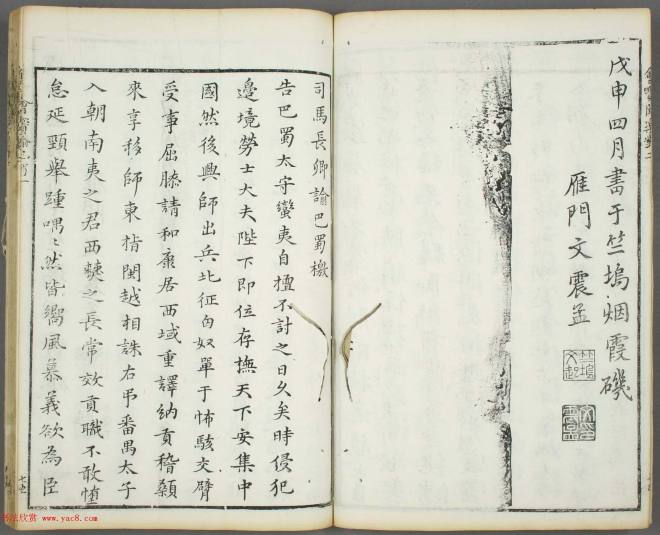 戊申四月書于竺塢烟霞磯
雁門文震孟
竺塢
文起
司馬長卿諭巴蜀檄
告巴蜀太守蠻夷自擅不討之日久矣時侵犯
邊境勞士大夫陛下即位存撫天下安集中
國然後興師出兵北征匈奴單于怖駭交臂
受事屈膝請和康居西域重譯納貢稽顙
來享移師東指閩越相誅右弔番禺太子
入朝南夷之君西僰之長常效貢職不敢惰
怠延頸舉踵喁喁然皆嚮風慕義欲為臣
书法欣赏 www.yac8.com